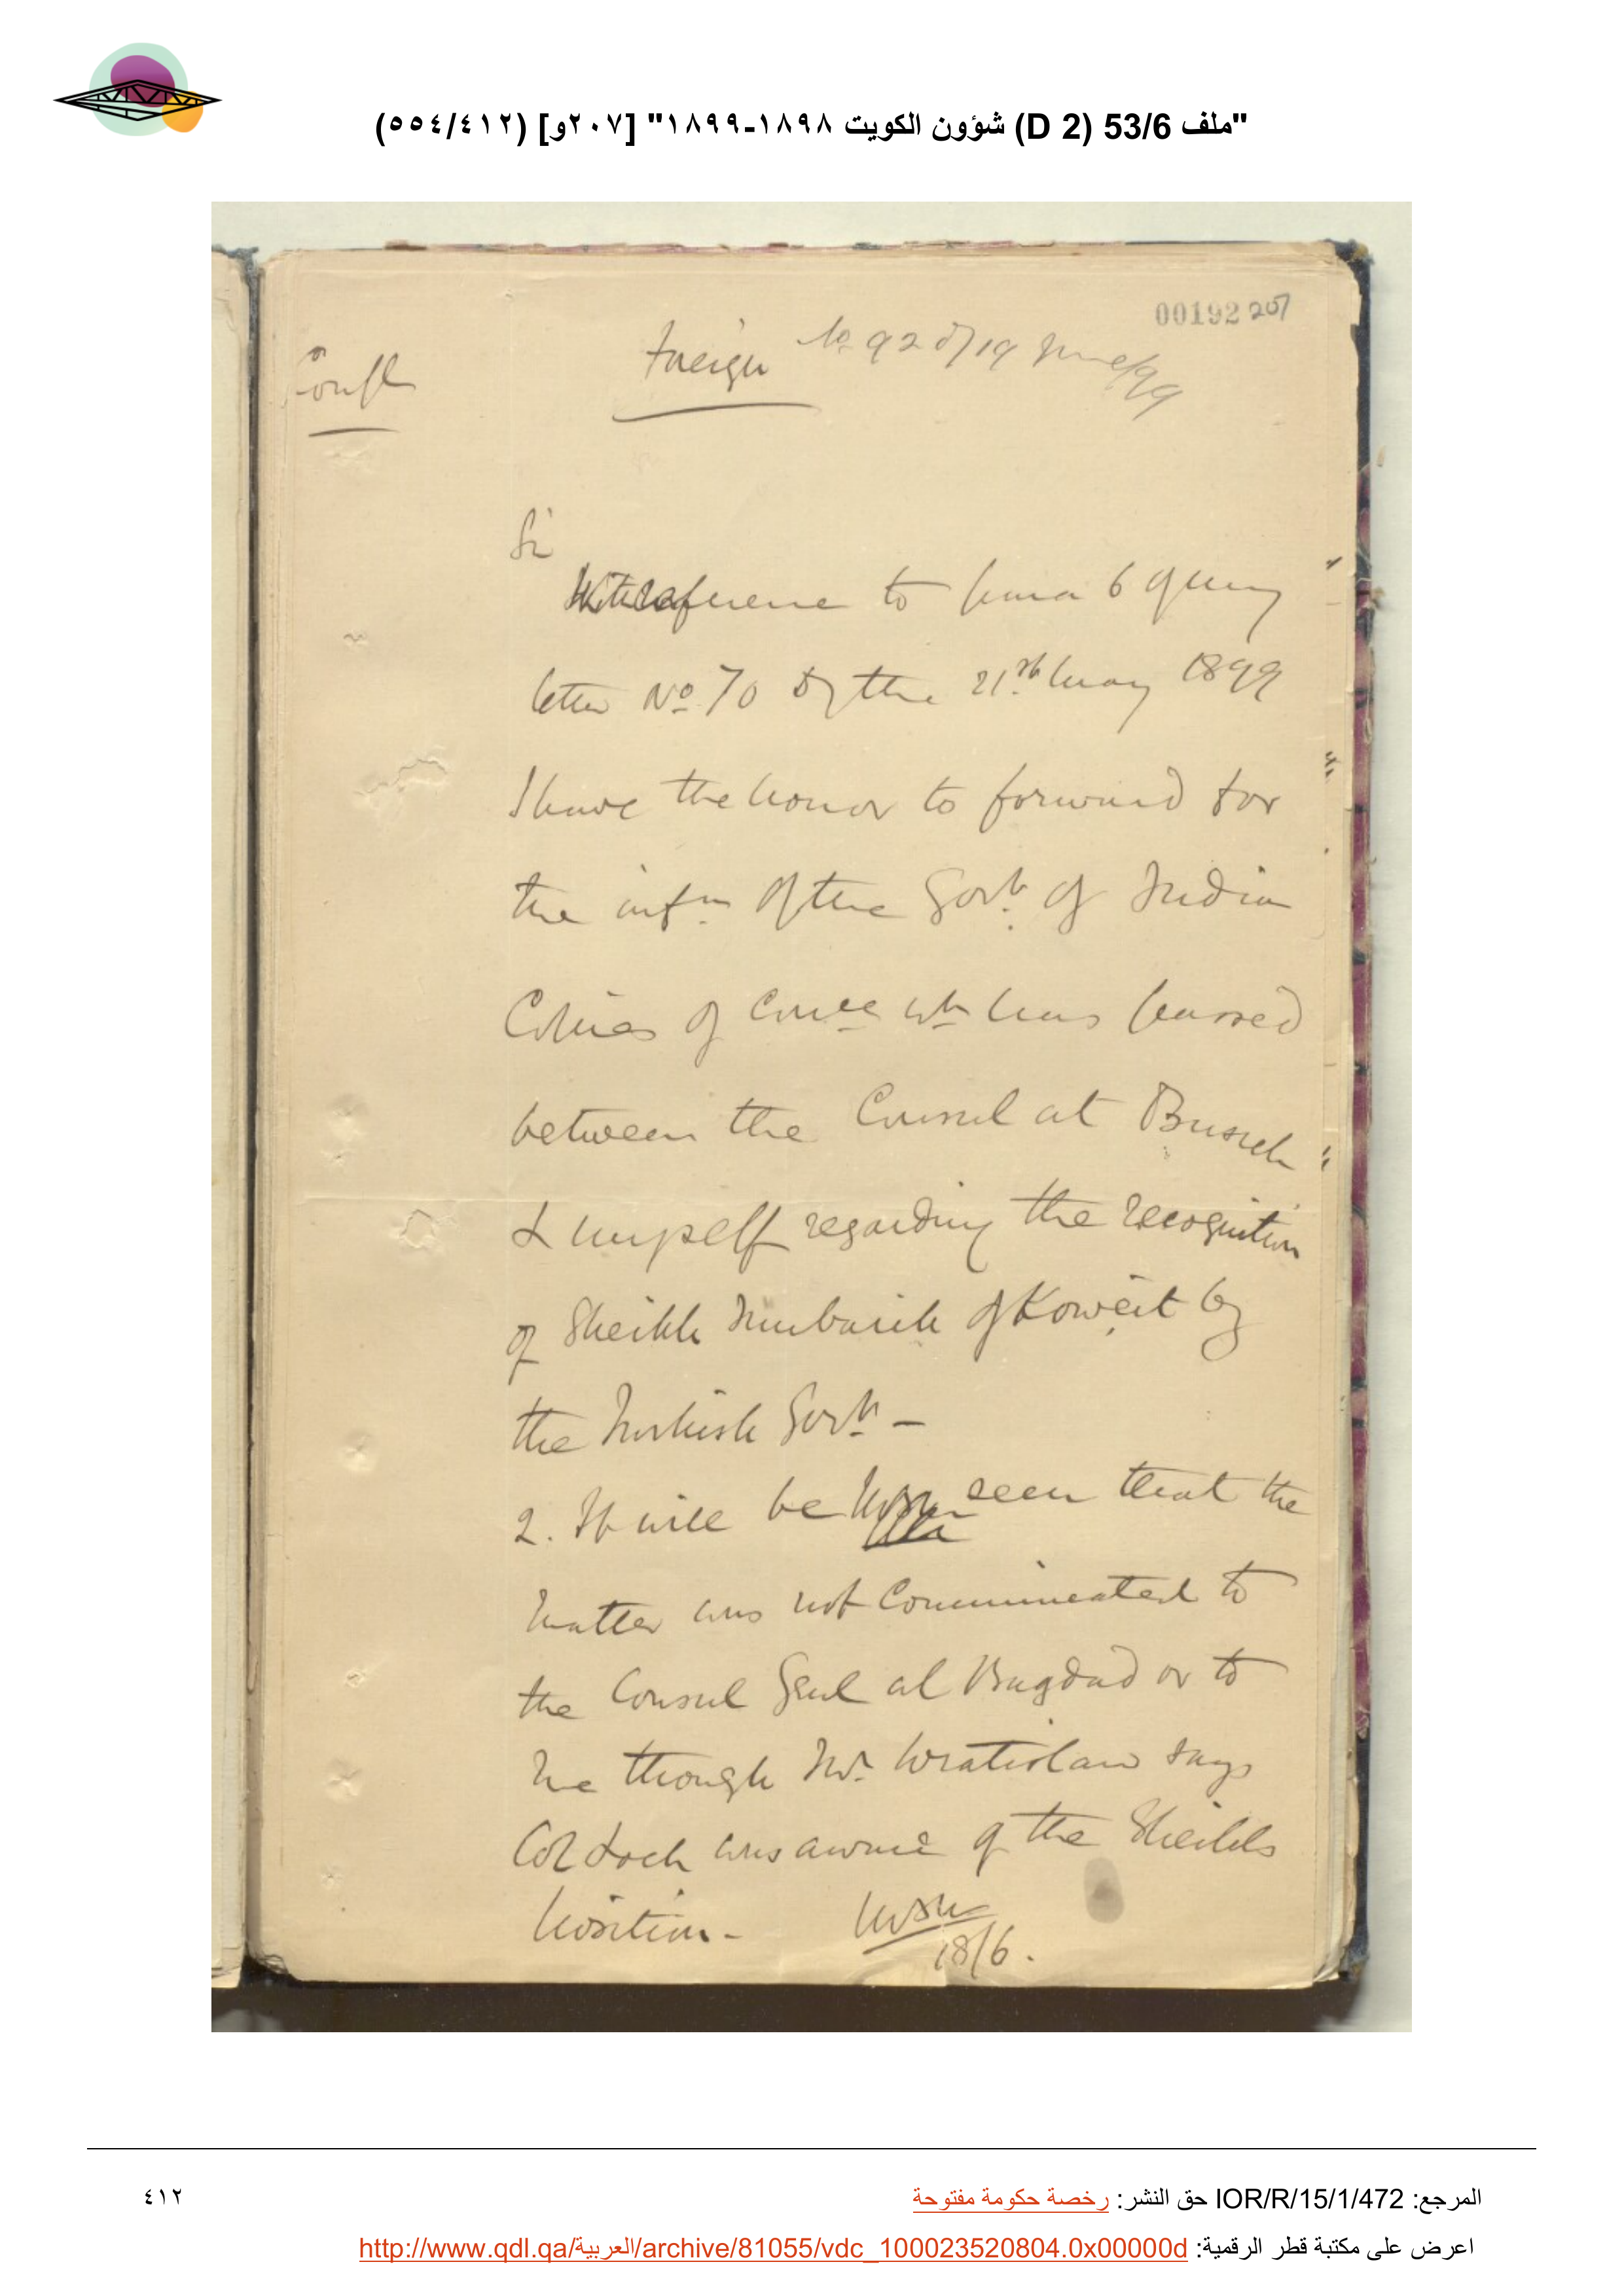 "ملف 53/6 (D 2) شؤون الكويت ١٨٩٨-١٨٩٩" [٢٠٧و] (٥٥٤/٤١٢)
00192 207
Confl
Foreign No 92 of 19 June/99
Sir
With reference to para 6 of my
letter No. 70 of the 21st May 1899
I have the honor to forward for
the infn of the Govt. of India
Copies of Corrce wh has passed
between the Consul at Busreh
& myself regarding the recognition
of Sheikh Mubarik of Koweit by
the Turkish Govt. –
2. It will be seen that the
matter was not Communicated to
the Consul Genl at Bagdad or to
me though Mr. Wratislaw says
Col Loch was aware of the Sheikhs
position –
18/6.
المرجع: IOR/R/15/1/472 حق النشر: رخصة حكومة مفتوحة
٤١٢
اعرض على مكتبة قطر الرقمية: http://www.qdl.qa/العربية/archive/81055/vdc_100023520804.0x00000d